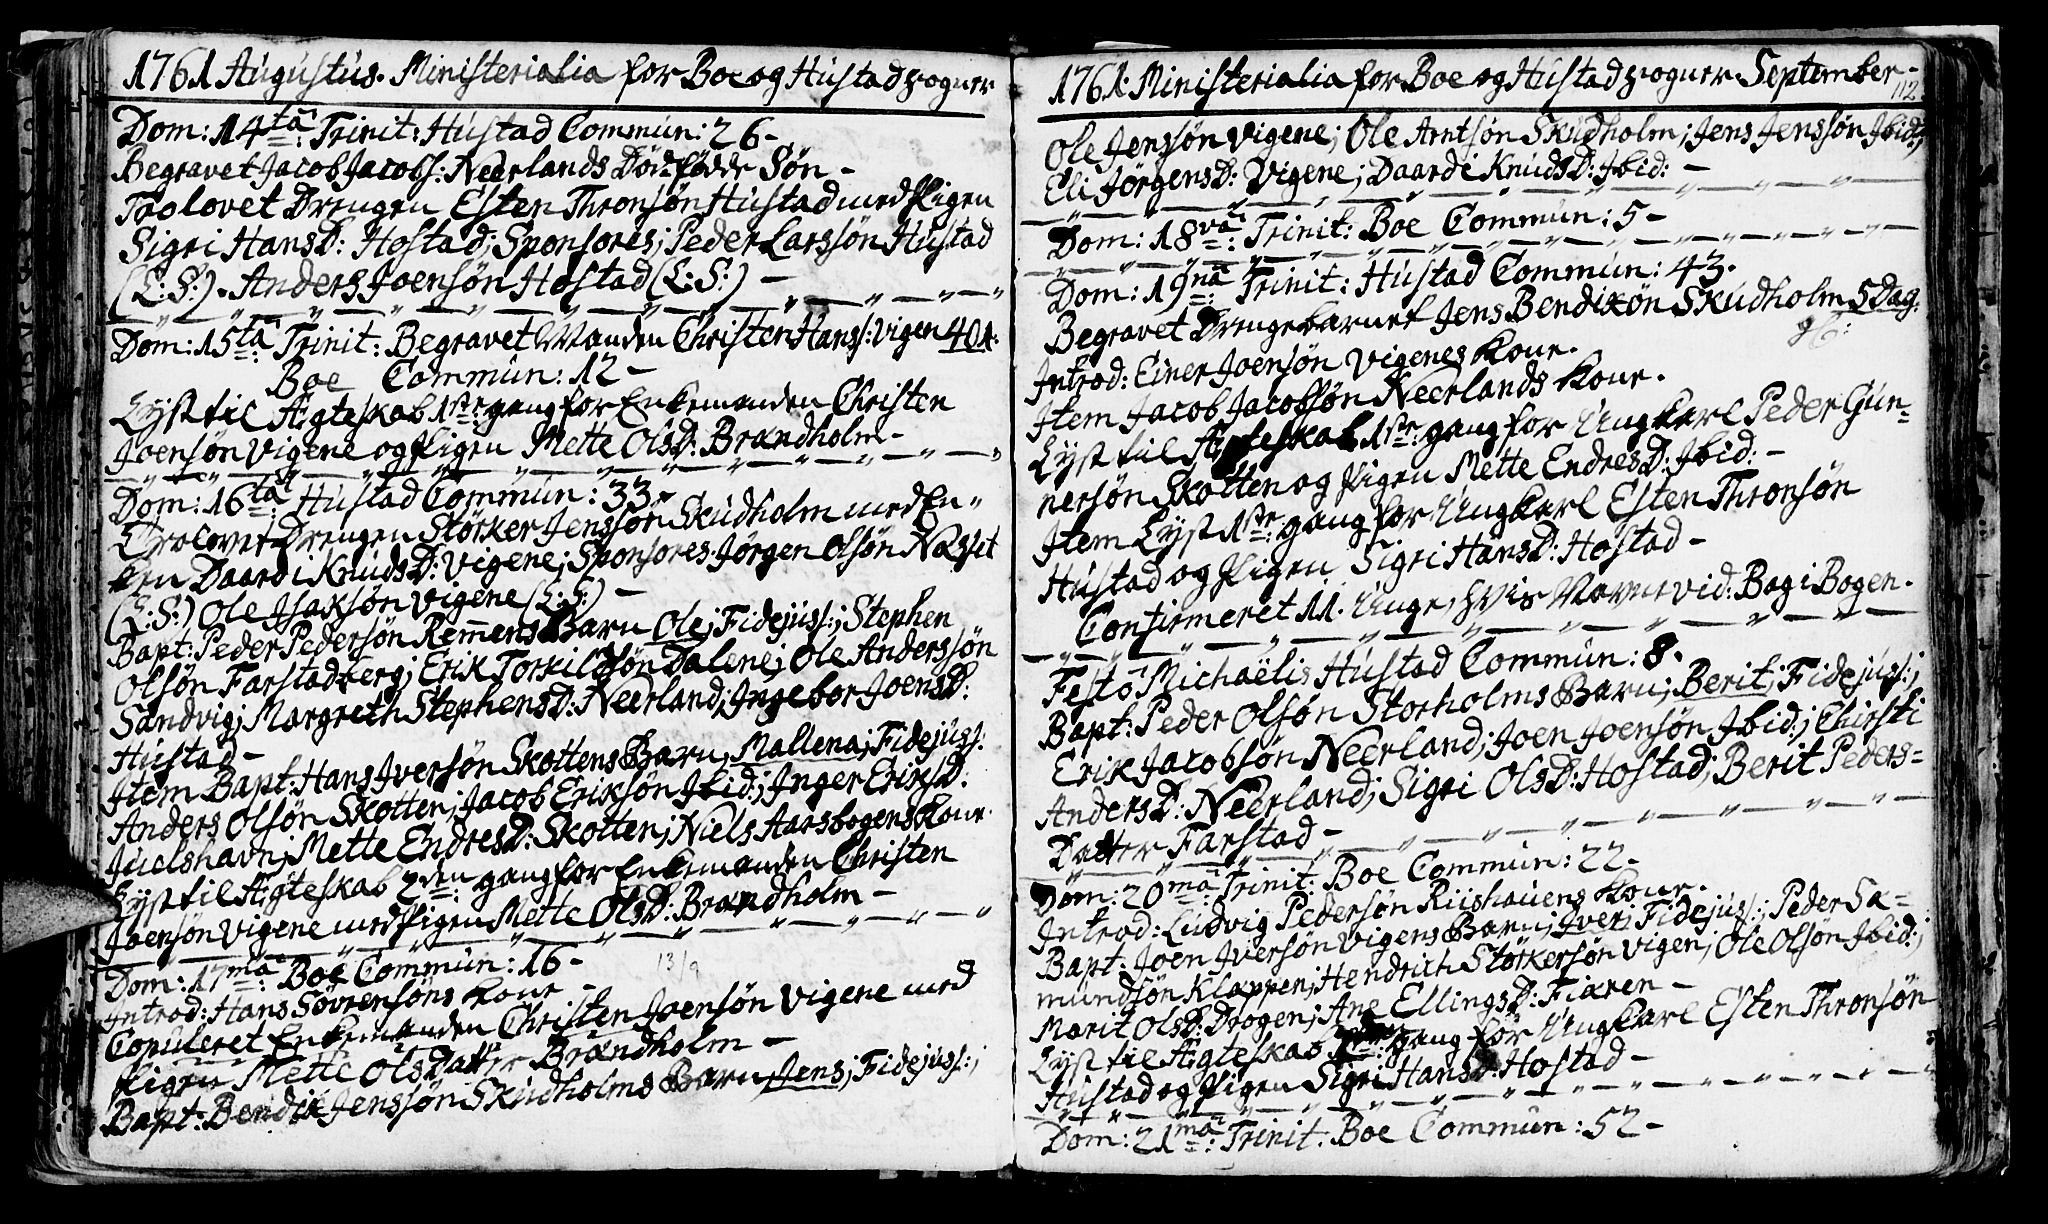 1761 Augustus. Ministerialia for Boe og Hustad sogner
Dom: 14ta: Trinit: Hustad Commun: 26 -
Begravet Jacob Jacobs: Neerlands Dødfødde Søn -
Trolovet Drengen Esten Thronsøn Hustad med Pigen
Sigri HansD: Hostad; Sponsores; Peder Larssøn Hustad
(L:S:). Anders Joensøn Hostad (L:S:) -
Dom: 15ta: Trinit: Begravet Manden Christen Hans: Vigen 40 A:
Boe Commun: 12 -
Lyst til Ægteskab 1ste gang for Enkemanden Christen
Joensøn Vigene og Pigen Mette OlsD: Brandholm -
Dom: 16ta: Hustad Commun: 33 -
Trolovet Drengen Størker Jenssøn Skudholm med En-
ken Daardi KnudsD: Vigene; Sponsores Jørgen Olsøn Nassit
(L:S:) Ole Isaksøn Vigene (L:S:) -
Bapt: Peder Pedersøn Remens Barn Ole; Fidejuss:; Stephen
Olsøn Farstadberg; Erik Torkildsøn Dalene; Ole Anderssøn
Sandvig; Margreth StephensD: Neerland; Ingebor JoensD:
Hustad -
Item Bapt: Hans Iversøn Skottens Barn; Mallena; Fidejuss:
Anders Olsøn Skotten; Jacob Eriksøn Ibid:; Inger EriksD:
Juelshavn; Mette EndresD: Skotten; Niels Aarsbogens Kone.
Lyst til Ægteskab 2den: gang for Enkemanden Christen
Joensøn Vigene med Pigen Mette OlsD: Brandholm -
Dom: 17ma: Boe Commun: 16 -
13/9
Introd: Hans Sövrensöns Kone -
Copuleret Enkemanden Christen Joensøn Vigene med
Pigen Mette OlsDatter Brandholm -
Bapt: Bendik Jenssøn Skudholms Barn Jens; Fidejuss:;
1761. Ministerialia for Boe og Hustad sogner September -
112
Ole Jensøn Vigene; Ole Arntsøn Skudholm; Jens Jenssøn Ibid:;
Eli JörgensD: Vigene; Daardi KnudsD: Ibid: -
Dom: 18va: Trinit: Boe Commun: 5 -
Dom: 19na: Trinit: Hustad Commun: 43.
Begravet Drengebarnet Jens Bendiksøn Skudholm 5 Dag:
Introd: Einer Joensøn Vigenes Kone.
Item Jacob Jacobsøn Neerlands Kone.
Lyst til Ægteskab 1ste: gang for Ungkarl Peder Gun-
nersøn Skotten og Pigen Mette EndresD: Ibid: -
Item Lyst 1ste: gang for Ungkarl Esten Thronsøn
Hustad og Pigen Sigri HansD: Hostad -
Confirmeret 11. Unge, hvis Navne vid: Bag i Bogen.
Festo Michaëlis Hustad Commun: 8.
Bapt: Peder Olsøn Storholms Barn; Berit; Fidejuss:;
Erik Jacobsøn Neerland; Joen Joensøn Ibid:; Chirsti
AndersD: Neerland; Sigri OlsD: Hostad; Berit Peders-
Datter Farstad -
Dom: 20ma: Trinit: Boe Commun: 22 -
Introd: Ludvig Pedersøn Riishauens Kone.
Bapt: Joen Iversøn Vigens Barn; Iver; Fidejuss:; Peder Sa-
mundsøn Klappen; Hendrich Störkersøn Vigen; Ole Olsøn Ibid:;
Marit OlsD: Drogen; Ane EllingsD: Fiaren -
Lyst til Ægteskab gang for Ungkarl Esten Thronsøn
Hustad og Pigen Sigri HansD: Hostad -
Dom: 21ma: Trinit: Boe Commun: 52 -